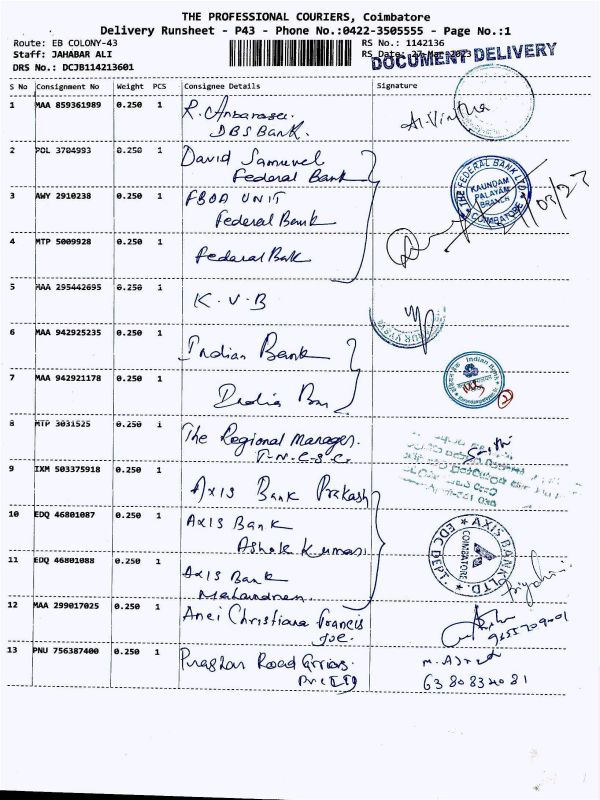 THE PROFESSIONAL COURIERS, Coimbatore
Delivery Runsheet - P43 - Phone No.:0422-3505555 - Page No.:1
Route: EB COLONY-43 RS No.: 1142136
Staff: JAHABAR ALI RS Date: 27-Mar-2023
DOCUMENT DELIVERY
DRS No.: DCJB114213601
S No Consignment No Weight PCS Consignee Details Signature
1 MAA 859361989 0.250 1 R.
DBS Bank.
2 POL 3704993 0.250 1 David Samuvel
Federal Bank
3 AWY 2910238 0.250 1 FBOA UNIT
Federal Bank
THE FEDERAL BANK LTD
KAUNDAM PALAYAM BRANCH
COIMBATORE
/03/23
4 MTP 5009928 0.250 1 Federal Bank
5 MAA 295442695 0.250 1 K.V.B
6 MAA 942925235 0.250 1 Indian Bank
7 MAA 942921178 0.250 1 India
Indian Bank
2
8 MTP 3031525 0.250 1 The Regional Manager.
T.N.C.S.C.
9 IXM 503375918 0.250 1 Axis Bank Prakash
10 EDQ 46801087 0.250 1 Axis Bank
Ashok Kumar
AXIS BANK LTD.
EDC DEPT.
COIMBATORE
11 EDQ 46801088 0.250 1 Axis Bank
12 MAA 299017025 0.250 1 Christiana Francis
13 PNU 756387400 0.250 1 Road
6380834081